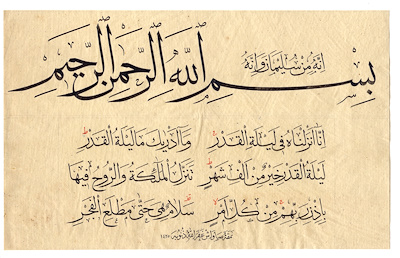 إنه من سليمان وإنه
بسم الله الرحمن الرحيم
إنا أنزلناه في ليلة القدر وما أدريك ما ليلة القدر
ليلة القدر خير من ألف شهر تنزل الملئكة والروح فيها
بإذن ربهم من كل أمر سلام هي حتى مطلع الفجر